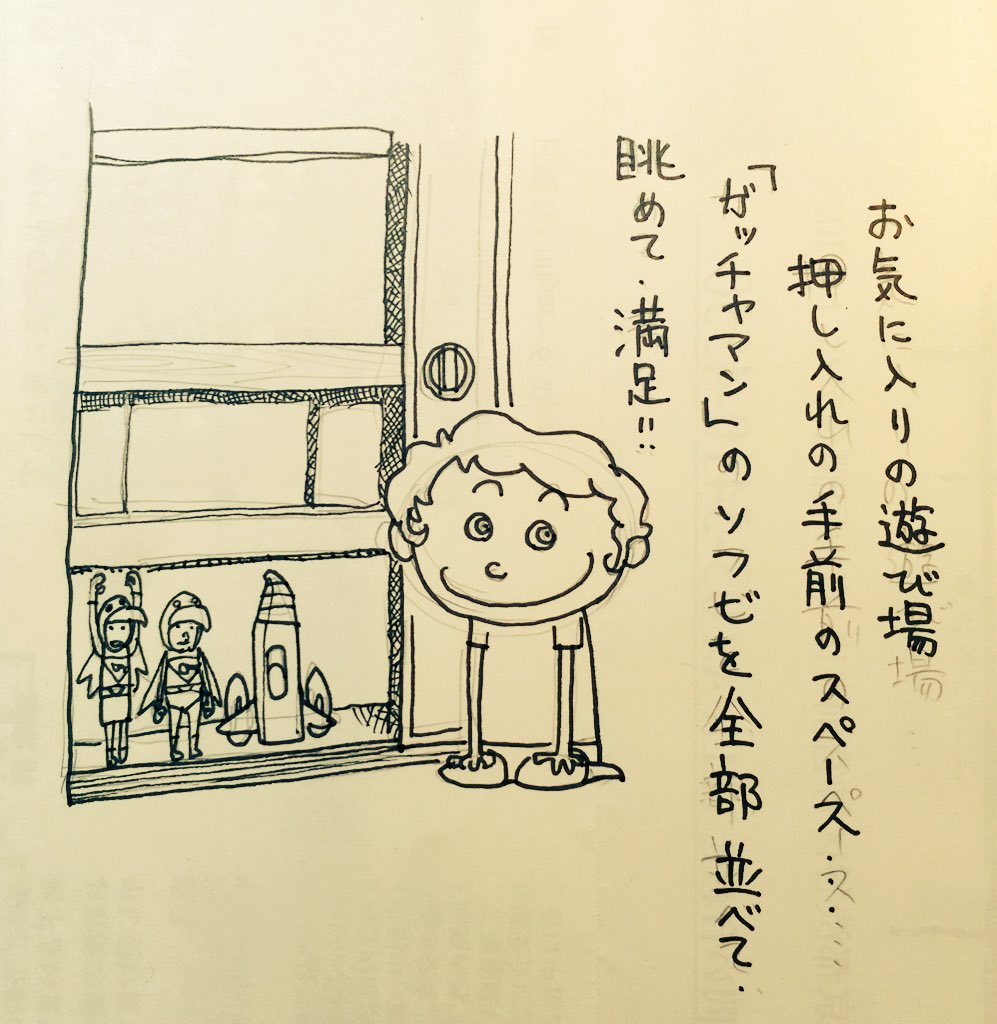 お気に入りの遊び場
押し入れの手前のスペース‥‥
「ガッチャマン」のソフビを全部並べて・
眺めて・満足!!